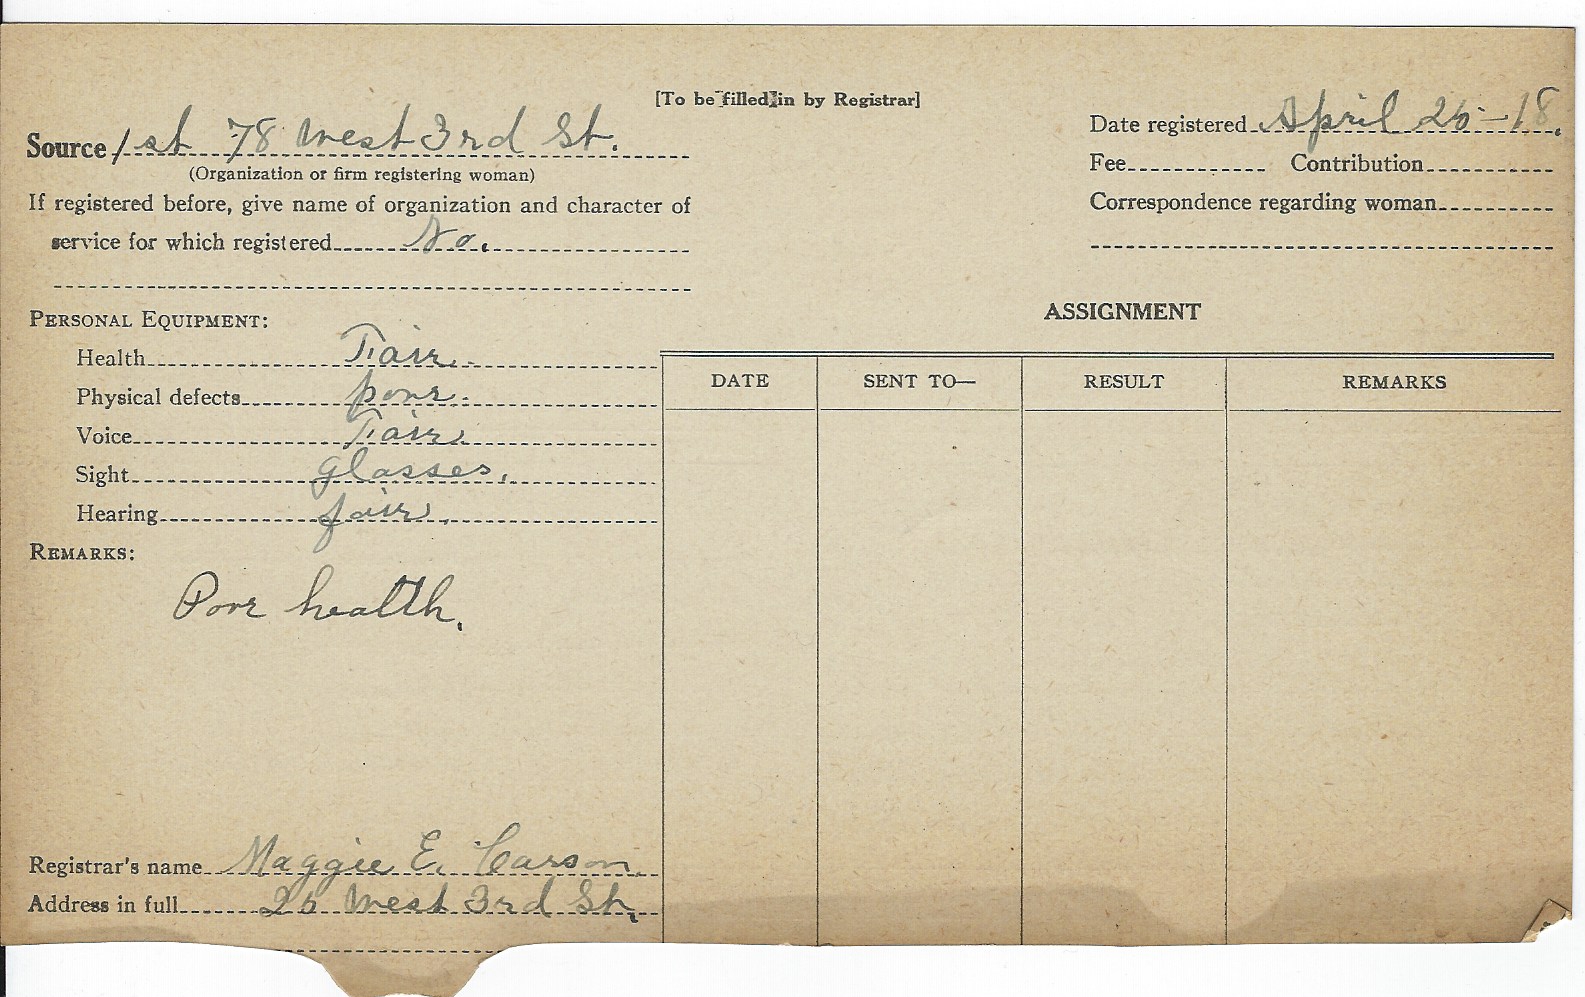 [To be filled in by Registrar]
Source 1st 78 West 3rd St.
(Organization or firm registering woman)
If registered before, give name of organization and character of
service for which registered No.
Date registered April 25-18.
Fee Contribution
Correspondence regarding woman
PERSONAL EQUIPMENT:
Health Fair.
Physical defects poor.
Voice Fair.
Sight glasses.
Hearing fair.
REMARKS:
Poor health.
Registrar's name Maggie E. Carson.
Address in full 25 West 3rd St.
ASSIGNMENT
DATE SENT TO— RESULT REMARKS